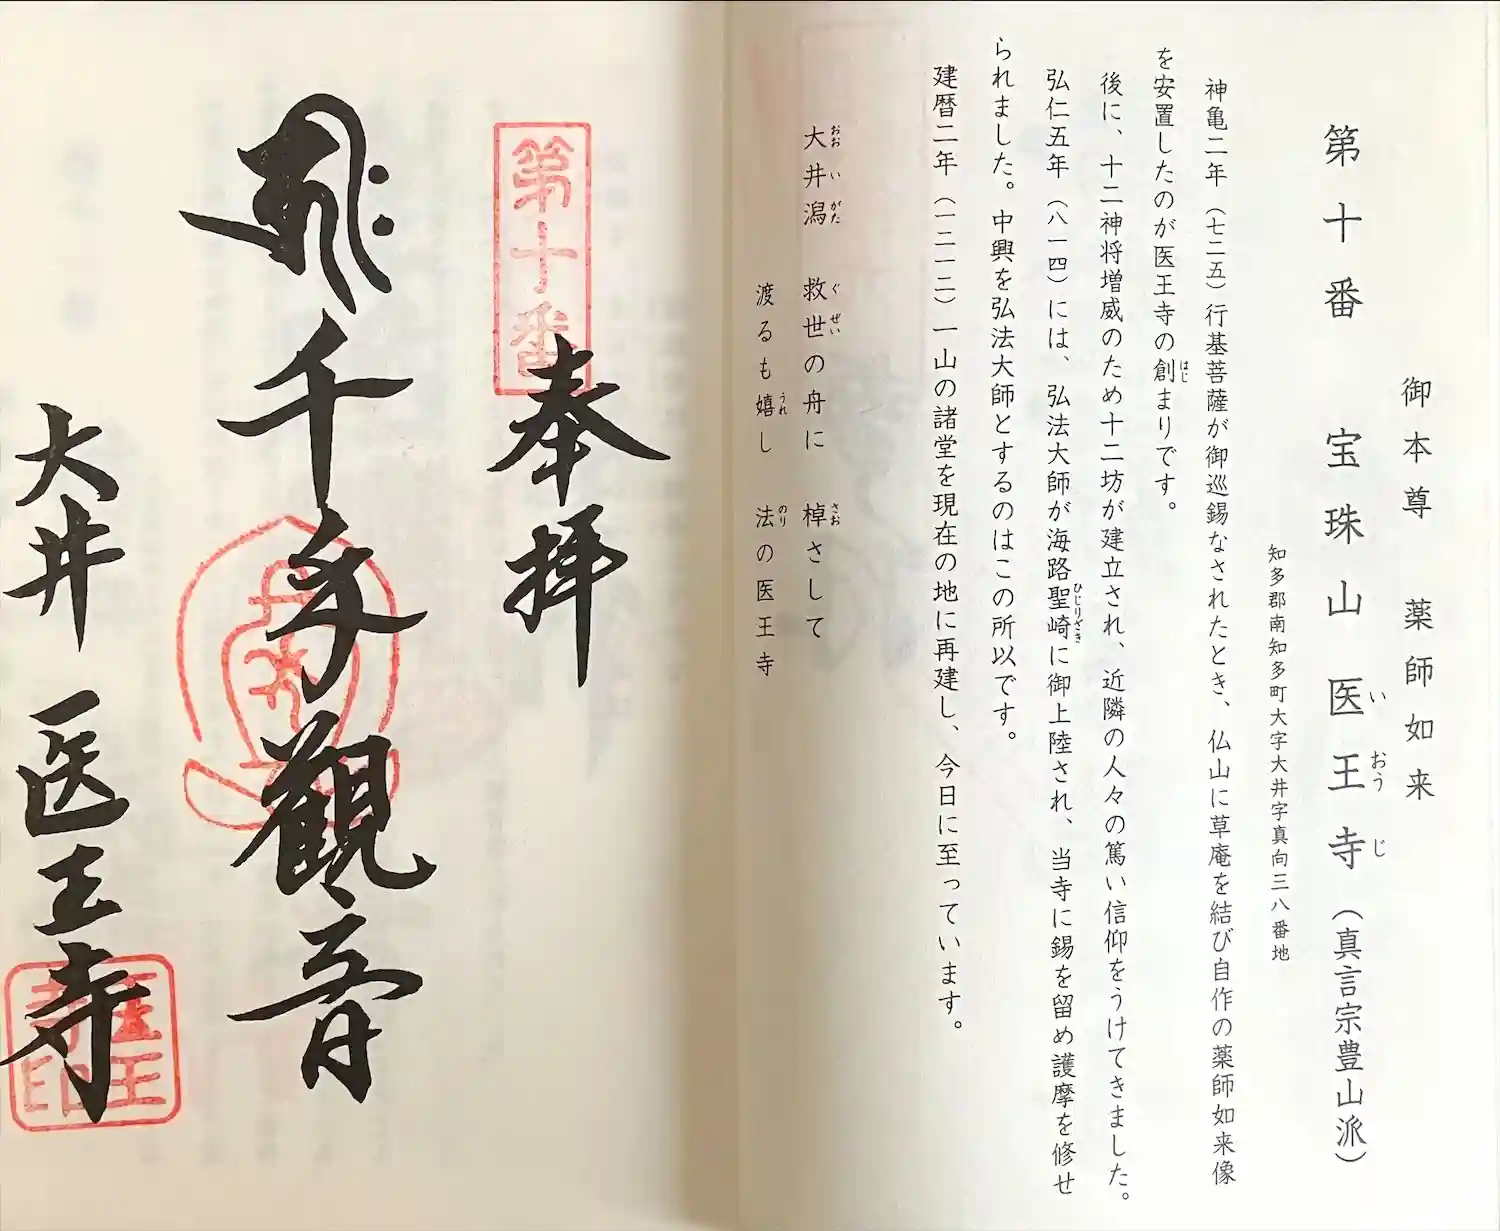 御本尊 薬師如来
第十番 宝珠山医王寺（真言宗豊山派）
い おう じ
知多郡南知多町大字大井字真向三八番地
神亀二年（七二五）行基菩薩が御巡錫なされたとき、仏山に草庵を結び自作の薬師如来像
を安置したのが医王寺の創まりです。
はじ
後に、十二神将増威のため十二坊が建立され、近隣の人々の篤い信仰をうけてきました。
弘仁五年（八一四）には、弘法大師が海路聖崎に御上陸され、当寺に錫を留め護摩を修せ
ひじりざき
られました。中興を弘法大師とするのはこの所以です。
建暦二年（一二一二）一山の諸堂を現在の地に再建し、今日に至っています。
大井潟 救世の舟に 棹さして
おお い がた ぐ ぜい さお
渡るも嬉し 法の医王寺
うれ のり
第十番
奉拝
千手觀音
大井 医王寺
医王寺印